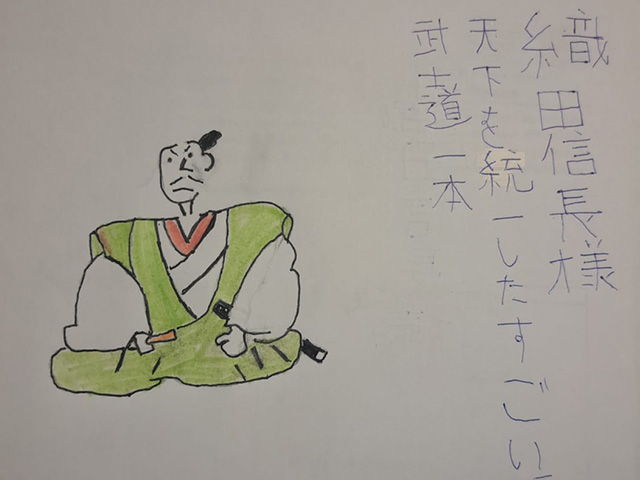 織田信長様
天下を統一したすごい
武士道一本